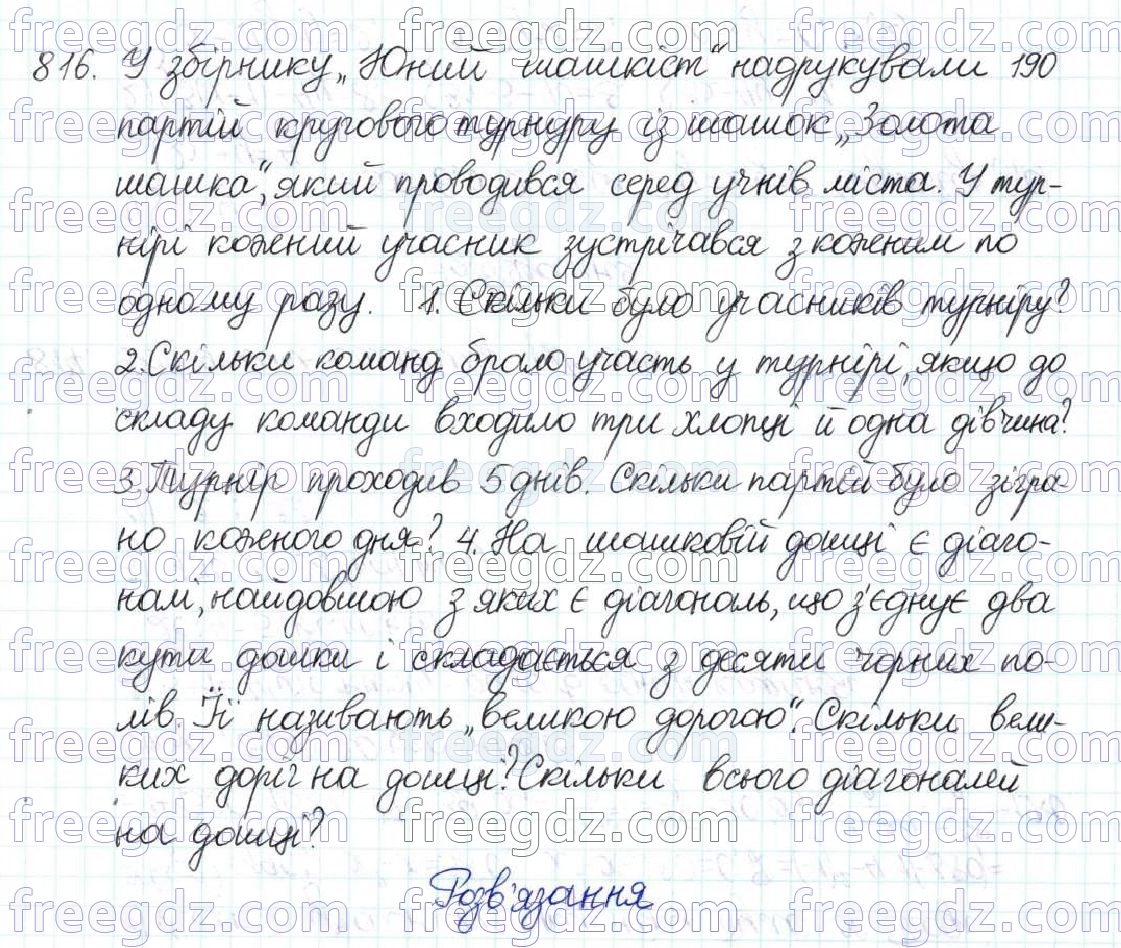 816. У збірнику „Юний шашкіст“ надрукували 190
партій кругового турнуру із шашок „Золота
шашка“, який проводився серед учнів міста. У тур-
нірі кожний учасник зустрічався з кожним по
одному разу. 1. Скільки було учасників турніру?
2. Скільки команд брало участь у турнірі, якщо до
складу команди входило три хлопці й одна дівчина?
3. Турнір проходив 5 днів. Скільки партій було зігра
но кожного дня? 4. На шашковій дошці є діаго-
налі, найдовшою з яких є діагональ, що з'єднує два
кути дошки і складається з десяти чорних по-
лів. Її називають „великою дорогою“. Скільки вели-
ких доріг на дошці? Скільки всього діагоналей
на дошці?
Розв'язання